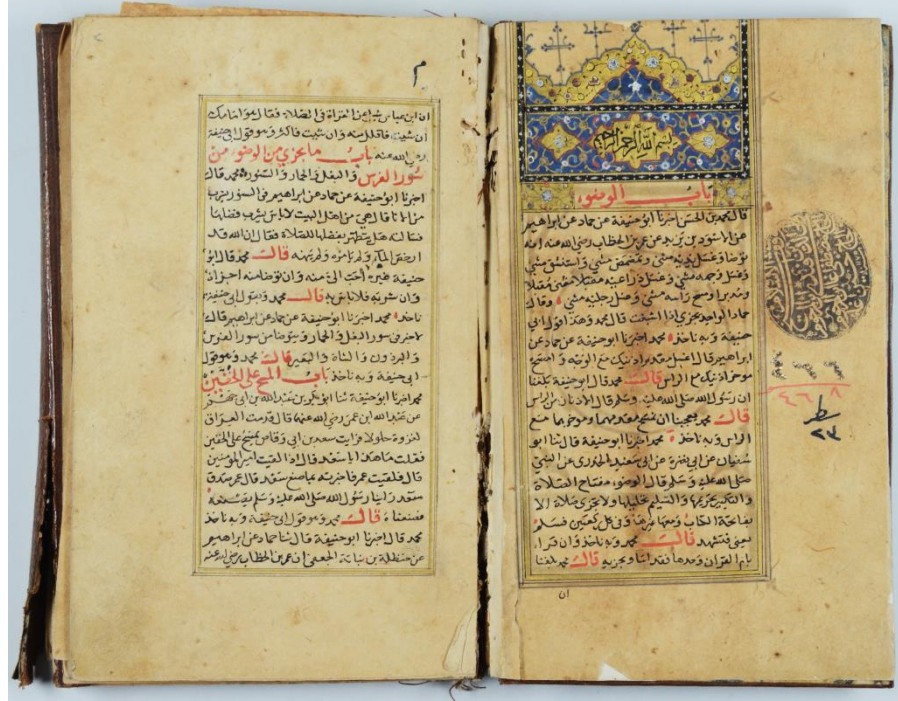 بسم الله الرحمن الرحيم
باب الوضوء
قال محمد بن الحسن اخبرنا ابو حنيفة عن حماد عن ابراهيم
عن الاسود بن يزيد عن عمر بن الخطاب رضي الله عنه انه
توضا وغسل يديه مثنى وتمضمض مثنى واستنشق مثنى
وغسل وجهه مثنى وغسل ذراعيه مقبلا مثنى مقبلا
ومدبرا ومسح راسه مثنى وغسل رجليه مثنى وقال
حماد الواحدة تجزي اذا اسبغت قال محمد وهذا قول ابي
حنيفة وبه ناخذ محمد اخبرنا ابو حنيفة عن حماد عن
ابراهيم قال اغسل مقدم اذنيك مع الوجه وامسح
موخر اذنيك مع الراس قال محمد قال ابو حنيفة بلغنا
ان رسول الله صلى الله عليه وسلم قال الاذنان من الراس
قال محمد يعجبنا ان نمسح مقدمهما وموخرهما مع
الراس وبه ناخذ محمد اخبرنا ابو حنيفة قال ثنا ابو
سفيان عن ابي نضرة عن ابي سعيد الخدري عن النبي
صلى الله عليه وسلم قال الوضوء مفتاح الصلاة
والتكبير تحريمها والتسليم تحليلها ولا تجزي صلاة الا
بفاتحة الكتاب ومعها غيرها وفي كل ركعتين فسلم
يعني فتشهد قال محمد وبه ناخذ وان قرا
بام القران وحدها فقد اساء وتجزيه قال محمد بلغنا
ان
سطر
٢٣
م
ان ابن عباس سئل عن القراة في الصلاة فقال هو امامك
ان شيت فاقلل منه وان شيت فاكثر وهو قول ابي حنيفة
رضي الله عنه باب ما يجزي من الوضوء من
سور الفرس والبغل والحمار والسنور محمد قال
اخبرنا ابو حنيفة عن حماد عن ابراهيم في السنور يشرب
من الانا قال هي من اهل البيت لا باس بشرب فضلها
فسالته هل يتطهر بفضلها للصلاة فقال ان الله قد
ارخص الماء ولم يامره ولم ينهه قال محمد قال ابو
حنيفة غيره احب الي منه وان توضا منه اجزاه
وان شربه فلا باس به قال محمد وبقول ابي حنيفة
ناخذ محمد اخبرنا ابو حنيفة عن حماد عن ابراهيم قال
لا خير في سور البغل والحمار ويتوضا من سور الفرس
والبرذون والشاة والبعير قال محمد وهو قول
ابي حنيفة وبه ناخذ باب المسح على الخفين
محمد اخبرنا ابو حنيفة ثنا ابو بكر بن عبد الله بن ابي
عن عبد الله ابن عمر رضي الله عنهما قال قدمت العراق
لغزوة جلولا فرايت سعد بن ابي وقاص يمسح على الخفين
فقلت ما هذا يا سعد قال اذا لقيت امير المومنين
قال فلقيت عمر فاخبرته بما صنع سعد قال عمر صدق
سعد راينا رسول الله صلى الله عليه وسلم يصنعه
فصنعناه قال محمد وهو قول ابي حنيفة وبه ناخذ
محمد قال اخبرنا ابو حنيفة قال ثنا حماد عن ابراهيم
عن حنظلة بن نباتة الجعفي ان عمر بن الخطاب رضي الله عنه